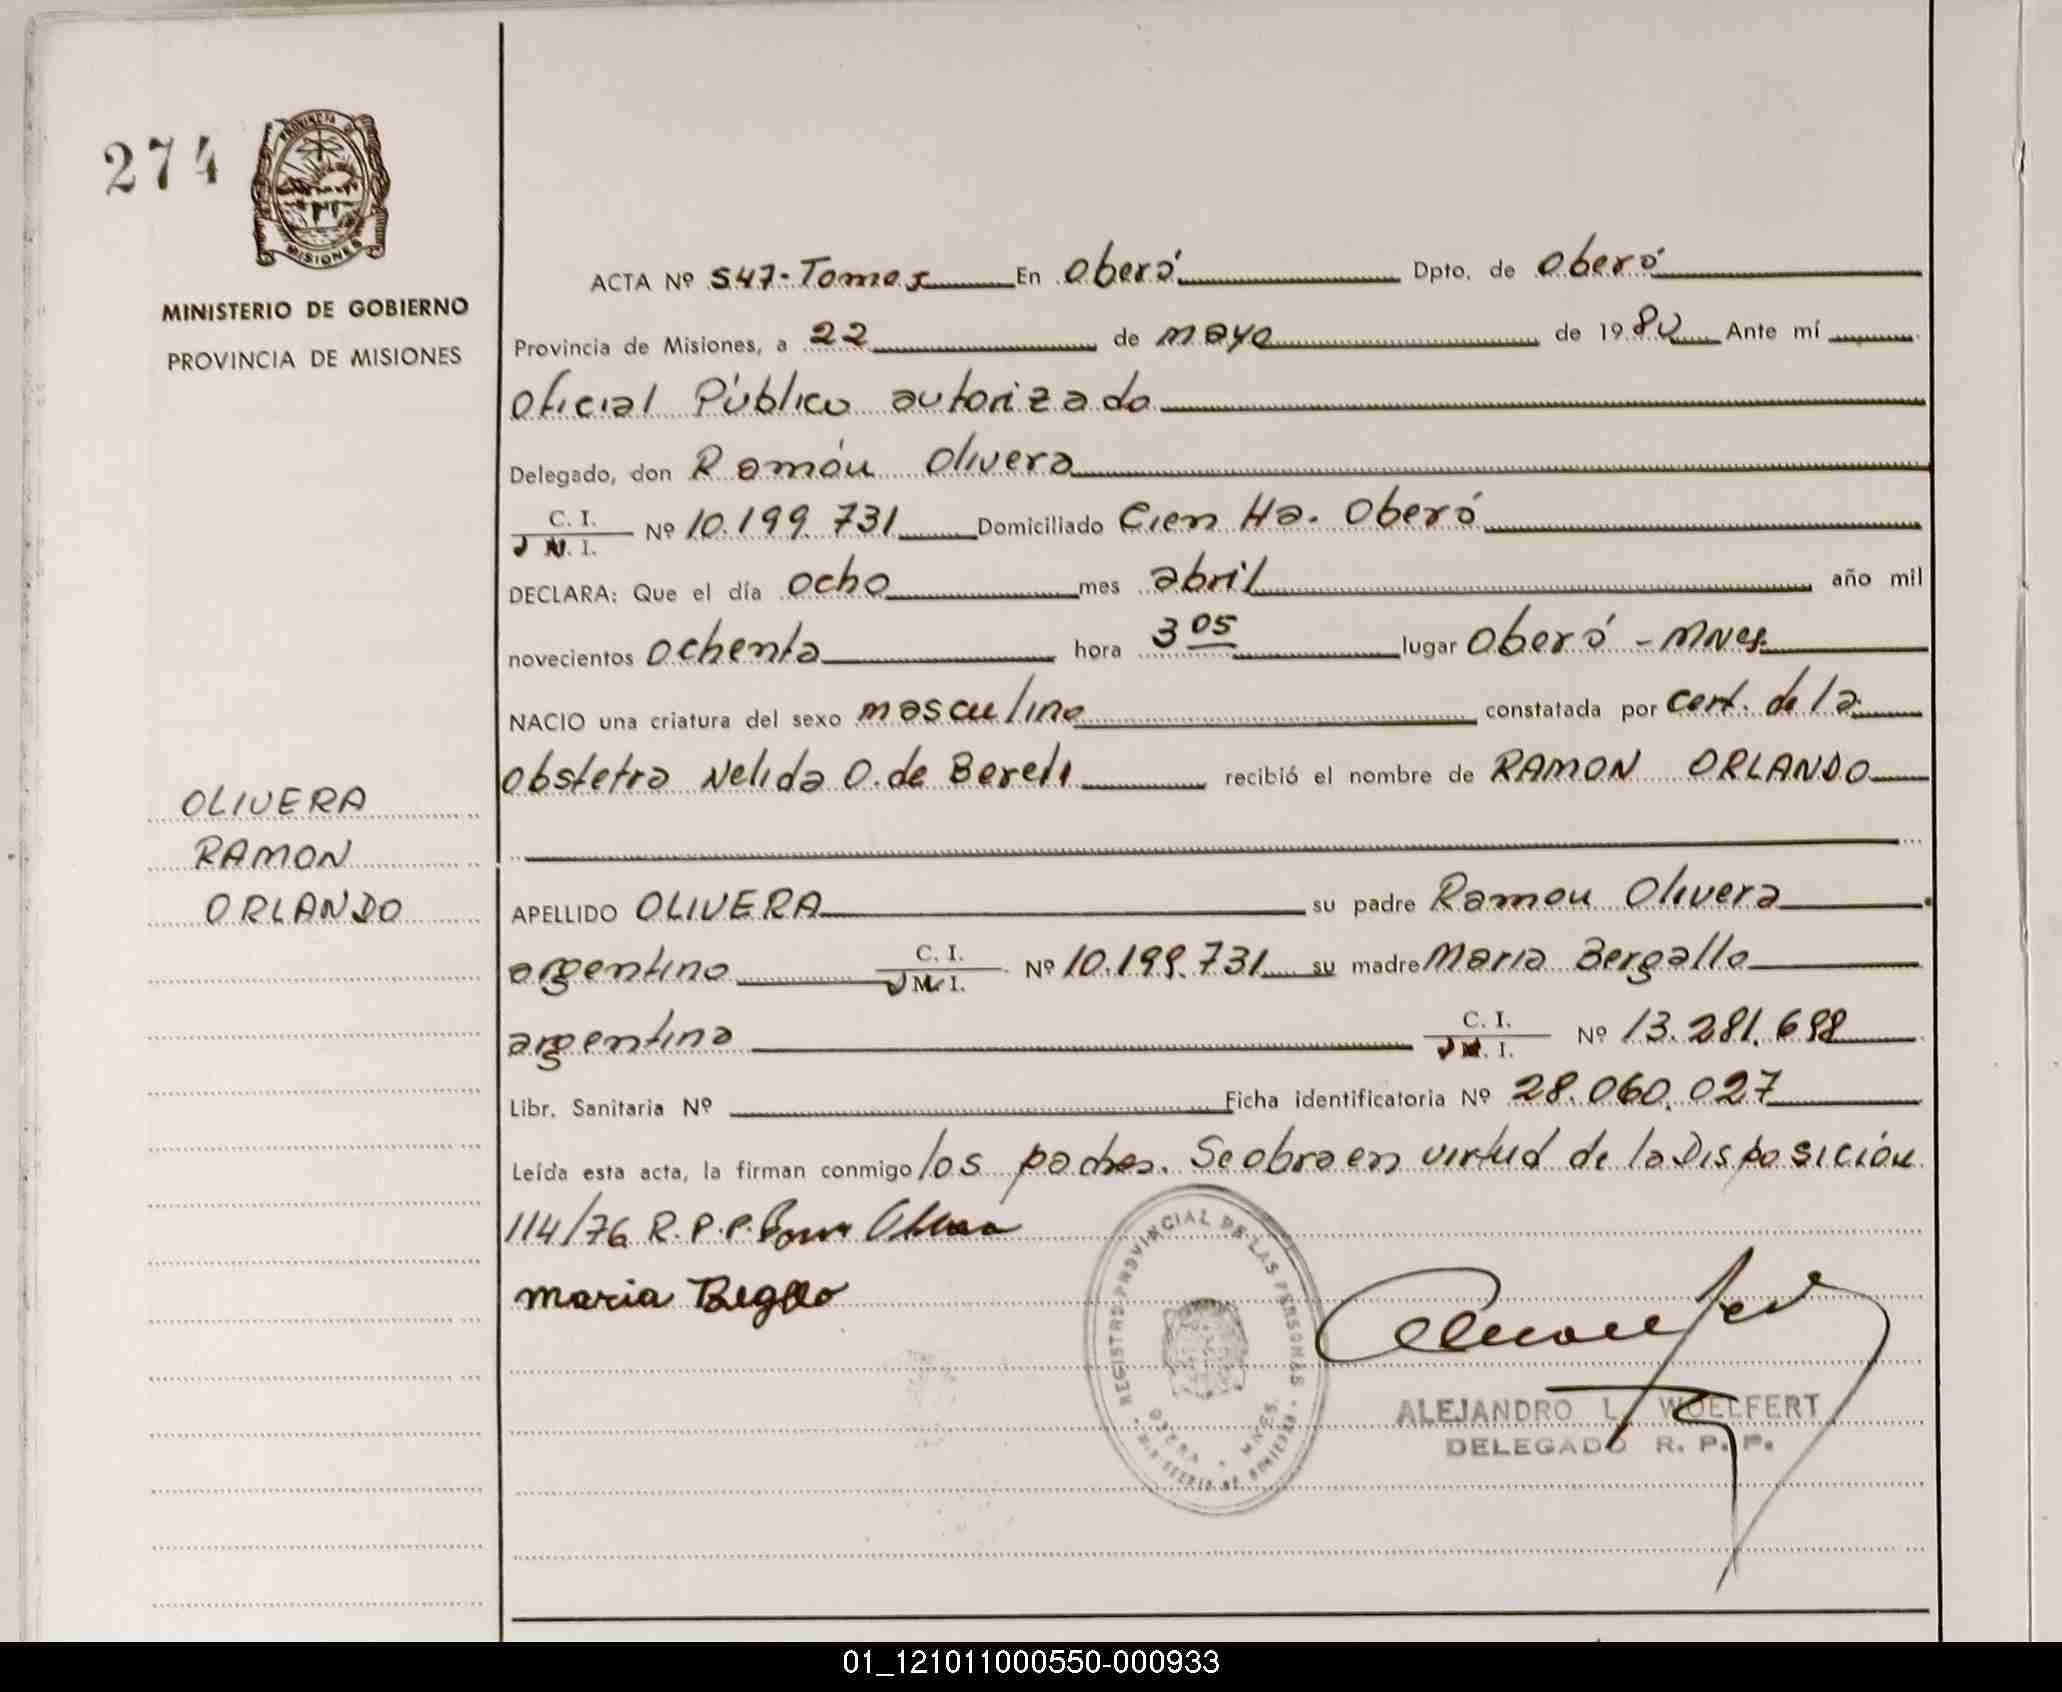 274
PROVINCIA DE
MISIONES
MINISTERIO DE GOBIERNO
PROVINCIA DE MISIONES
OLIVERA
RAMON
ORLANDO
ACTA Nº 547-Tomo I En Oberá Dpto. de Oberá
Provincia de Misiones, a 22 de mayo de 1980 Ante mí
Oficial Público autorizado
Delegado, don Ramón Olivera
C. I.
M. I. Nº 10.199.731 Domiciliado Cien Ha. Oberá
DECLARA: Que el día ocho mes abril año mil
novecientos ochenta hora 3 05 lugar Oberá - Mnes.
NACIO una criatura del sexo masculino constatada por cert. de la
obstetra Nelida O. de Bereti recibió el nombre de RAMON ORLANDO
APELLIDO OLIVERA su padre Ramon Olivera
argentino C. I. M. I. Nº 10.199.731 su madre Maria Bergallo
argentina C. I. M. I. Nº 13.281.698
Libr. Sanitaria Nº Ficha identificatoria Nº 28.060.027
Leída esta acta, la firman conmigo los padres. Se obra en virtud de la Disposición
114/76 R.P.P.
maria
REGISTRO PROVINCIAL DE LAS PERSONAS
OBERA - MNES.
ALEJANDRO L. WOELFERT
DELEGADO R. P. P.
01_121011000550-000933